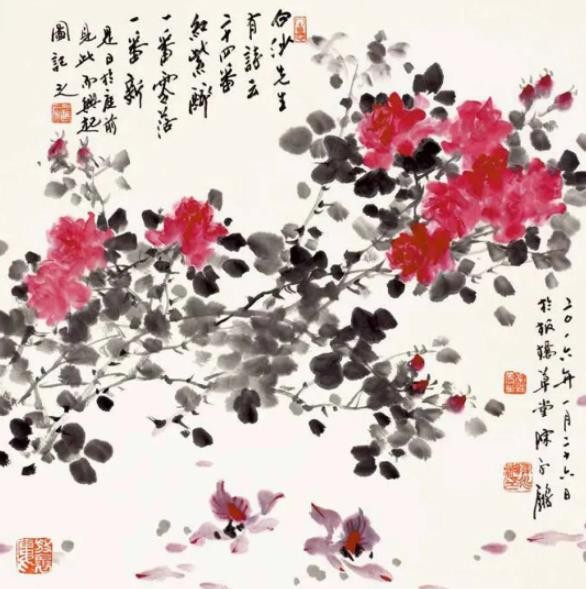 白沙先生
有詩云
二十四番
紅紫
一番零落
一番新
是日於庭前
見此而興起
圖記之
二〇一六年一月二十六日
於板橋草堂陳永鏘